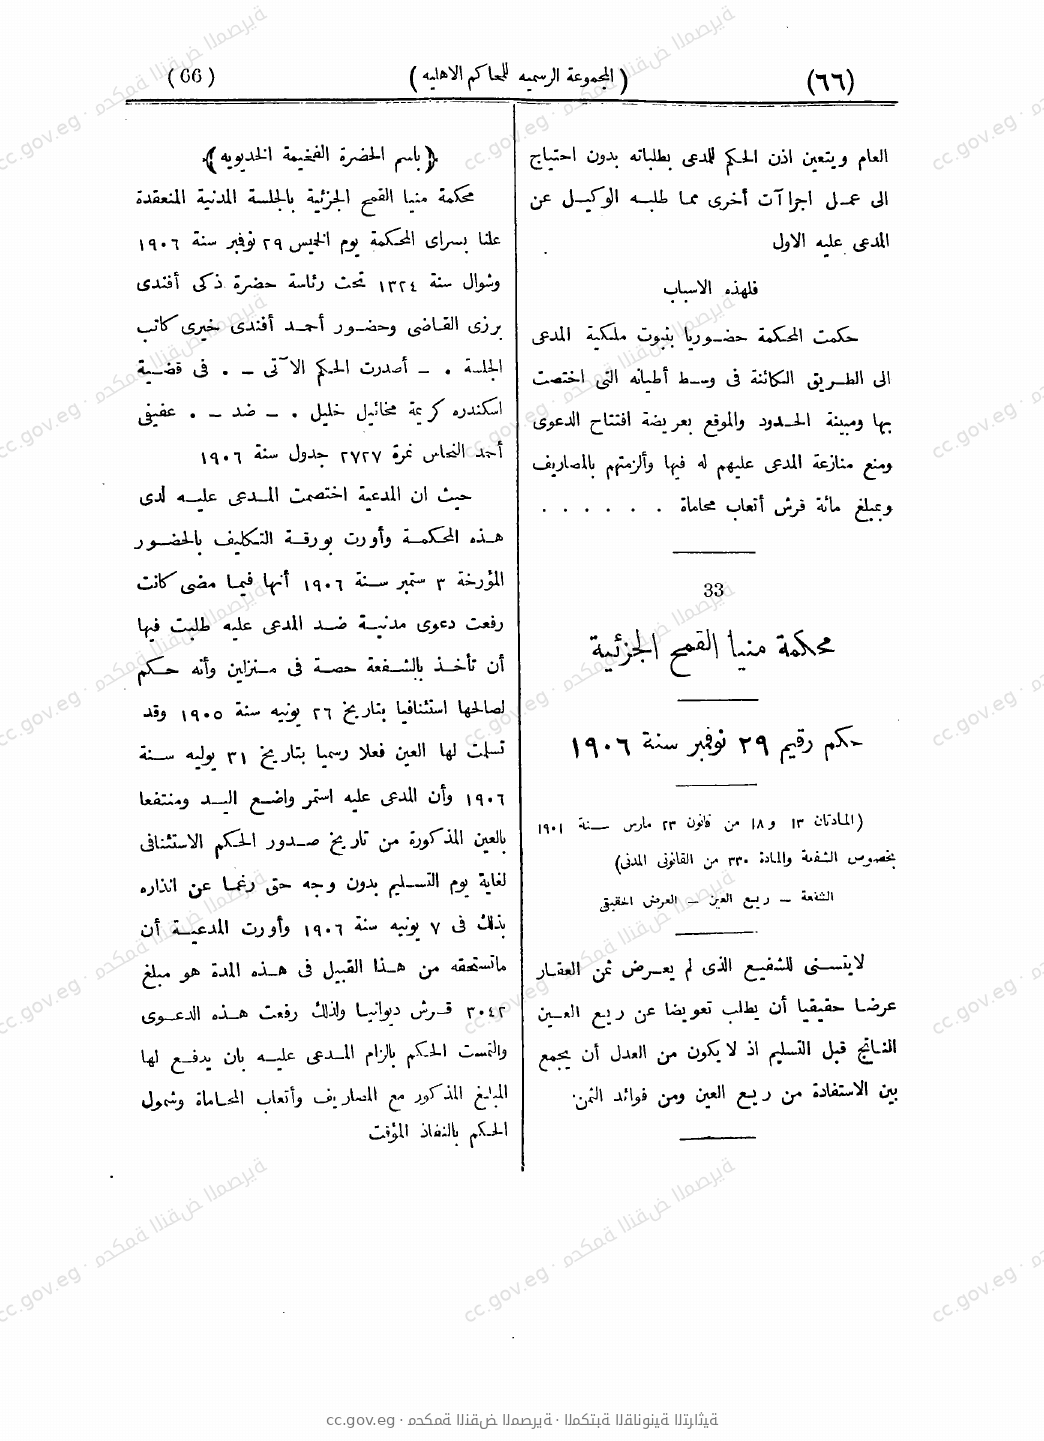 (٦٦) (المجموعة الرسميه للمحاكم الاهليه) (66)
العام ويتعين اذن الحكم للمدعى بطلباته بدون احتياج
الى عمل اجراآت أخرى مما طلبه الوكيل عن
المدعى عليه الاول
فلهذه الاسباب
حكمت المحكمة حضوريا بثبوت ملكية المدعى
الى الطريق الكائنة فى وسط أطيانه التى اختصت
بها ومبينة الحدود والموقع بعريضة افتتاح الدعوى
ومنع منازعة المدعى عليهم له فيها وألزمتهم بالمصاريف
وبمبلغ مائة قرش أتعاب محاماة . . . . . .
33
محكمة منيا القمح الجزئية
حكم رقيم ٢٩ نوفمبر سنة ١٩٠٦
(المادتان ١٣ و١٨ من قانون ٢٣ مارس سنة ١٩٠١
بخصوص الشفعة والمادة ٣٣٠ من القانونى المدنى)
الشفعة – ريع العين – العرض الحقيقى
لايتسنى للشفيع الذى لم يعرض ثمن العقار
عرضا حقيقيا أن يطلب تعويضا عن ريع العين
الناتج قبل التسليم اذ لا يكون من العدل أن يجمع
بين الاستفادة من ريع العين ومن فوائد الثمن
﴿باسم الحضرة الفخيمة الخديويه﴾
محكمة منيا القمح الجزئية بالجلسة المدنية المنعقدة
علنا بسراى المحكمة يوم الخميس ٢٩ نوفمبر سنة ١٩٠٦
وشوال سنة ١٣٢٤ تحت رئاسة حضرة ذكى أفندى
برزى القاضى وحضور أحمد أفندى خيرى كاتب
الجلسة . – أصدرت الحكم الآتى – . فى قضية
اسكندره كريمة مخائيل خليل . – ضد – . عفيفى
أحمد النحاس نمرة ٢٧٢٧ جدول سنة ١٩٠٦
حيث ان المدعية اختصمت المدعى عليه لدى
هذه المحكمة وأورت بورقة التكليف بالحضور
المؤرخة ٣ ستمبر سنة ١٩٠٦ أنها فيما مضى كانت
رفعت دعوى مدنية ضد المدعى عليه طلبت فيها
أن تأخذ بالشفعة حصة فى منزلين وأنه حكم
لصالحها استئنافيا بتاريخ ٢٦ يونيه سنة ١٩٠٥ وقد
تسلمت لها العين فعلا رسميا بتاريخ ٣١ يوليه سنة
١٩٠٦ وأن المدعى عليه استمر واضع اليد ومنتفعا
بالعين المذكورة من تاريخ صدور الحكم الاستئنافى
لغاية يوم التسليم بدون وجه حق رغما عن انذاره
بذلك فى ٧ يونيه سنة ١٩٠٦ وأورت المدعية أن
ماتستحقه من هذا القبيل فى هذه المدة هو مبلغ
٣٠٤٢ قرش ديوانيا ولذلك رفعت هذه الدعوى
والتمست الحكم بالزام المدعى عليه بان يدفع لها
المبلغ المذكور مع المصاريف وأتعاب المحاماة وشمول
الحكم بالنفاذ المؤقت
cc.gov.eg · محكمة النقض المصرية · المكتبة القانونية التراثية